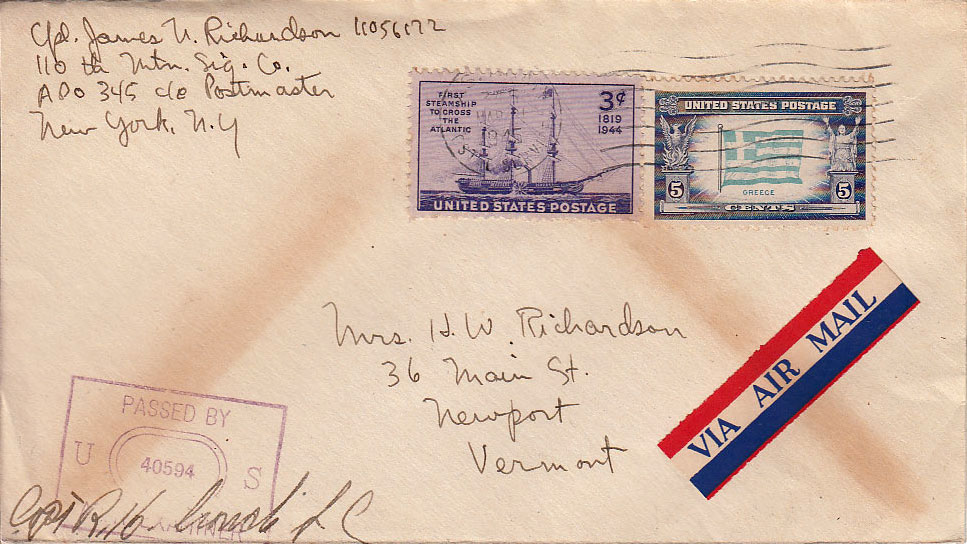 Cpl. James N. Richardson 11056172
110 th Mtn. Sig. Co.
APO 345 c/o Postmaster
New York, N.Y
FIRST
STEAMSHIP
TO CROSS
THE
ATLANTIC
3¢
1819
1944
UNITED STATES POSTAGE
UNITED STATES POSTAGE
GREECE
5 5
CENTS
Mrs. H. W. Richardson
36 Main St.
Newport
Vermont
VIA AIR MAIL
PASSED BY
U 40594 S
Capt R. H.